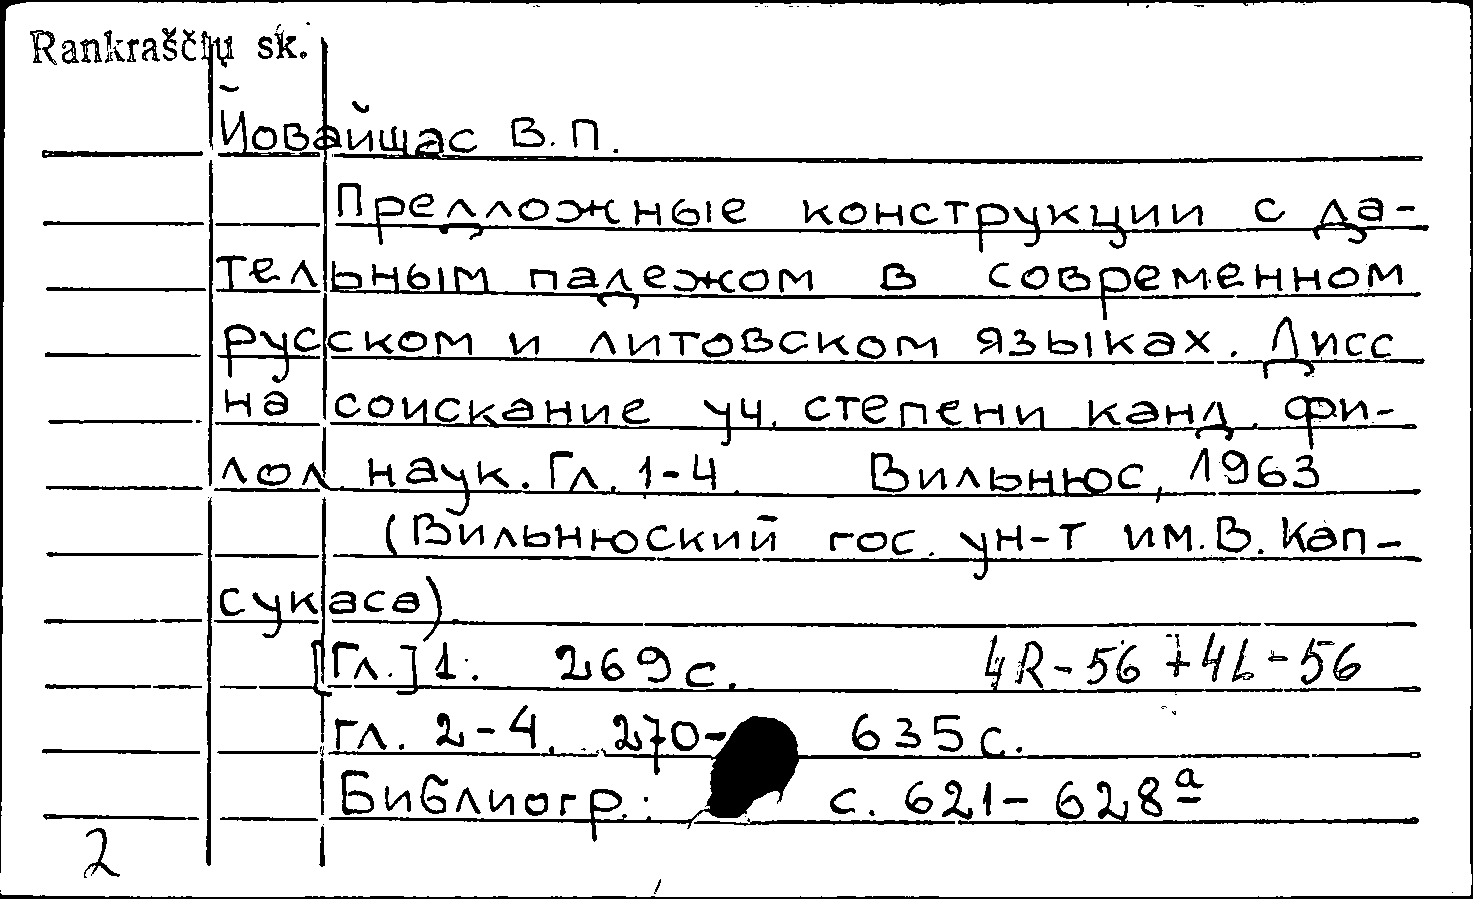 Rankraščių sk.
Йовайщас В.П.
Предложные конструкции с да-
тельным падежом в современном
русском и литовском языках. Дисс
на соискание уч. степени канд. фи-
лол. наук. Гл. 1-4. Вильнюс, 1963
(Вильнюский гос. ун-т им. В. Кап-
сукаса)
[Гл.] 1. 269 с. 4R-56 + 4L-56
гл. 2-4. 270- 635 с.
Библиогр.: с. 621-628а
2